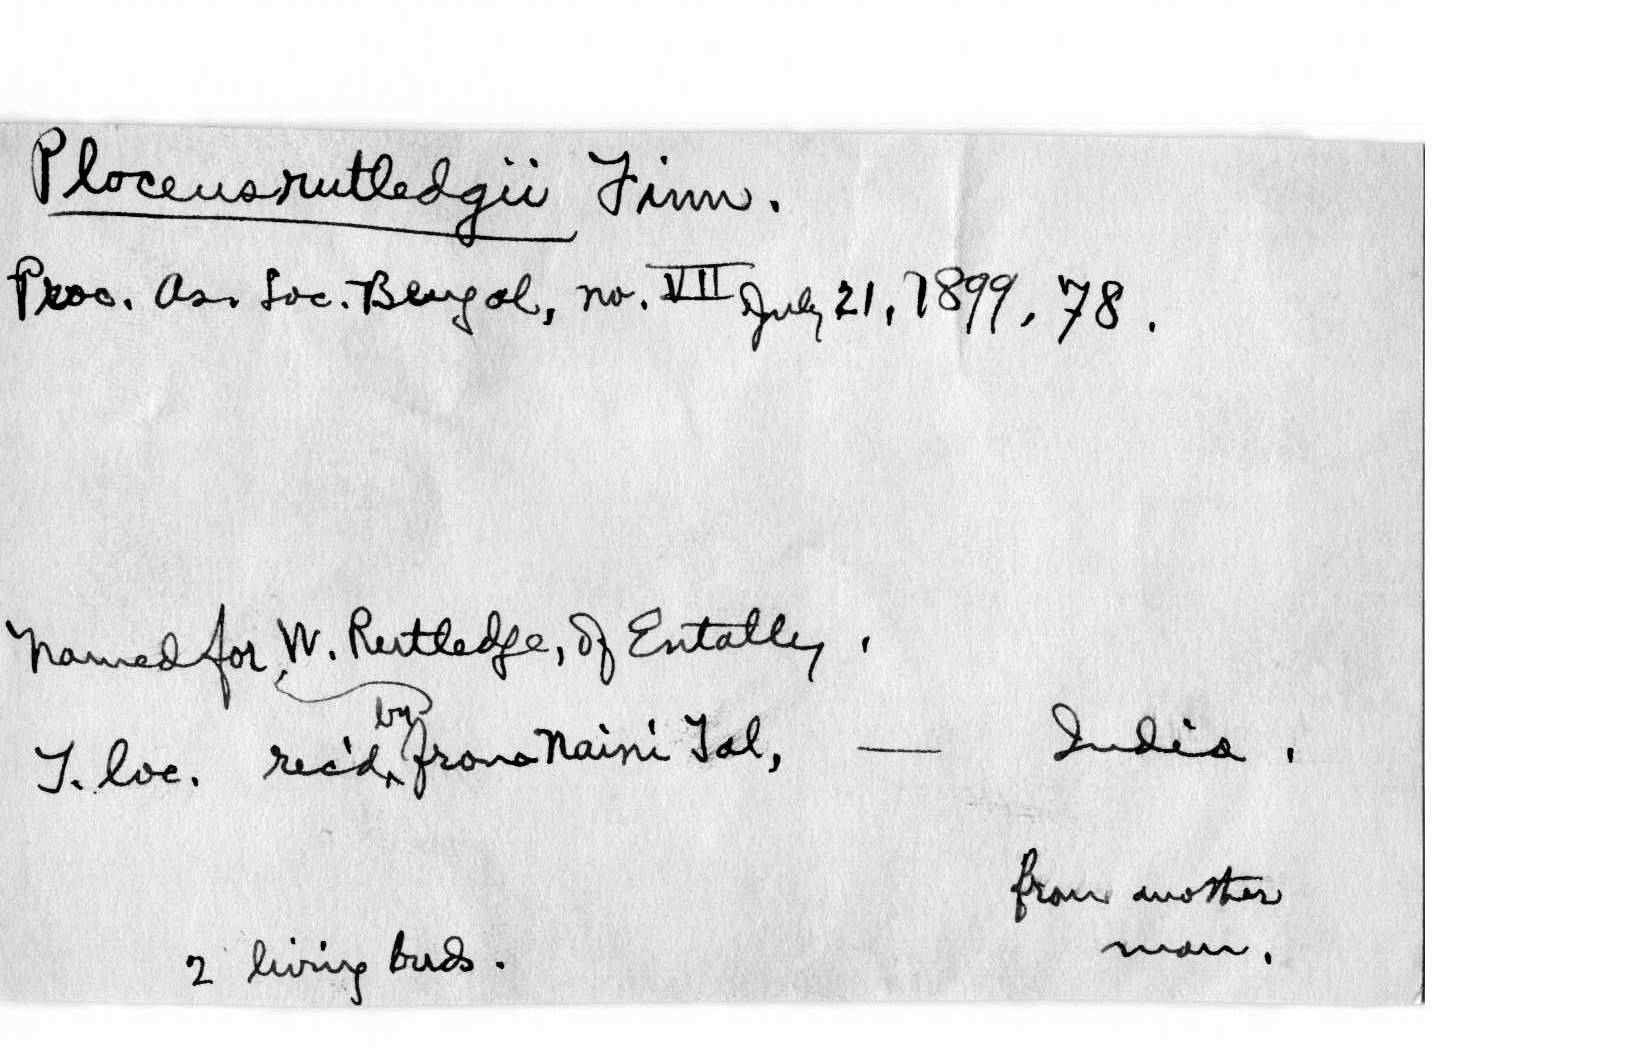 Ploceus rutledgii Finn.
Proc. As. Soc. Bengal, no. VII July 21, 1899, 78.
Named for W. Rutledge, of Entally.
by
T. loc. rec'd, from Naini Tal, — India.
from another
man.
2 living birds.